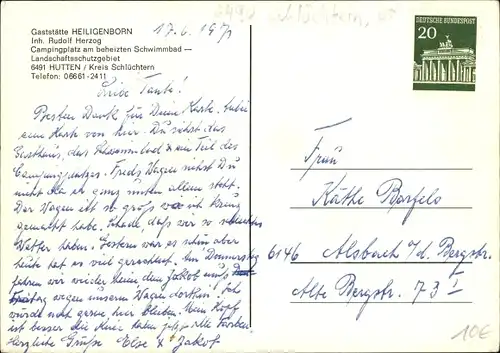 Gaststätte HEILIGENBORN
Inh. Rudolf Herzog
Campingplatz am beheizten Schwimmbad —
Landschaftsschutzgebiet
6491 HUTTEN / Kreis Schlüchtern
Telefon: 06661-2411
17.6.1971
Liebe Tante!
Besten Dank für Deine Karte. Habe
eine Karte von hier. Du siehst das
Gasthaus, das Schwimmbad & ein Teil des
Campingplatzes. Freds Wagen siehst Du
nicht da er ganz unten allein steht.
Der Wagen ist so groß wie ich Kreuz
gemacht habe. Schade, daß wir so schlechtes
Wetter haben. Gestern war es schön aber
heute hat es viel geregnet. Am Donnerstag
fahren wir wieder heim dem Jakob und
Freitag wegen unserem Wagen dorthin. Ich
würde noch gerne hier bleiben. Mein Kopf
ist besser die haben Farben
Herzliche Grüße Else & Jakob
DEUTSCHE BUNDESPOST
20
Frau
Käthe Barfels
6146 Alsbach / d. Bergstr.
Alte Bergstr. 73 I
10€